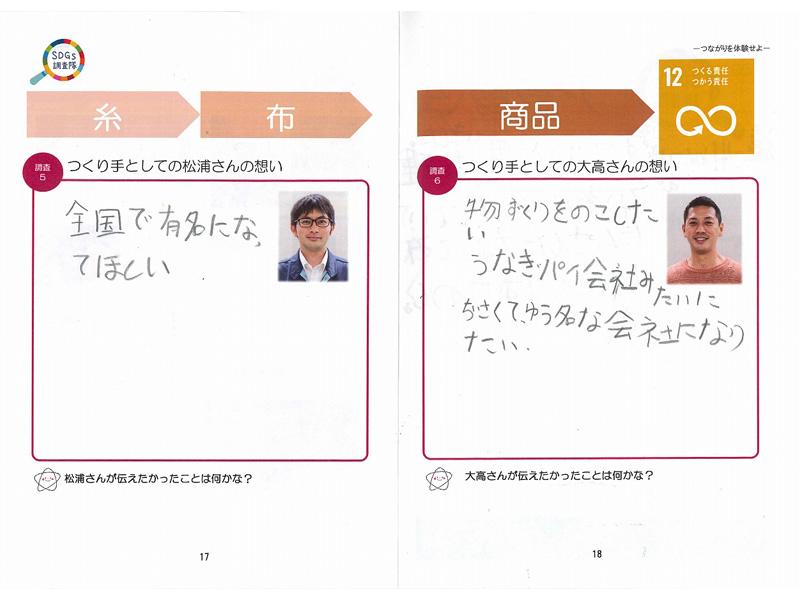 SDGs
調査隊
糸
布
調査
5
つくり手としての松浦さんの想い
全国で有名になっ
てほしい
松浦さんが伝えたかったことは何かな？
17
―つながりを体験せよ―
12 つくる責任
つかう責任
商品
調査
6
つくり手としての大高さんの想い
物ずくりをのこしたた
い
うなぎパイ会社み
たいに
ちさくて、ゆう名な会社になり
たい.
大高さんが伝えたかったことは何かな？
18